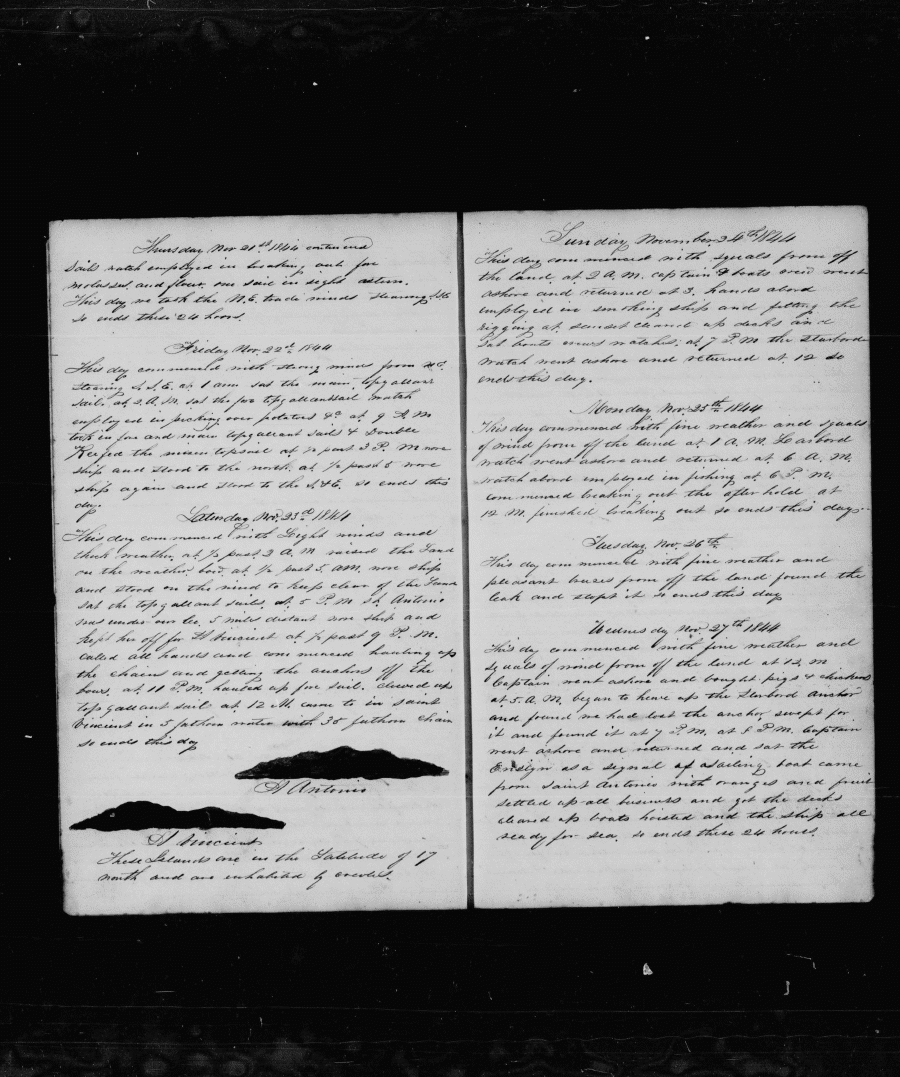 Thursday Nov 21st 1844 continued
Sails watch employed in breaking out for
molasses, and flour, one sail in sight astern.
This day we took the N.E. trade winds steering S.S.E.
so ends these 24 hours.
Friday Nov. 22d 1844
This day commenced with strong winds from NE.
steering S.S.E. at 1 am sat the main topgallant
sail. at 2 A.M. sat the fore topgallantsail watch
employed in picking over potatoes &c at 9 A M
took in fore and main topgallant sails & double
Reefed the mizen topsail at ½ past 3 P. M wore
ship and stood to the north. at ½ past 5 wore
ship again and stood to the S.&E. so ends this
day.
Saturday Nov. 23d 1844
This day commenced with Light winds and
thick weather. at ½ past 3 A. M raised the Land
on the weather bow. at ½ past 5. AM. wore ship
and stood on the wind to keep clear of the Land
sat the topgallant sails. at 5 P. M St. Antonio
was under our lee. 5 miles distant wore ship and
kept her off for St Vincient at ½ past 9 P. M.
called all hands and commenced hauling up
the chains and getting the anchors off the
bows, at 11 P.M. hauled up fore sail. clewed up
topgallant sail at 12 M came to in saint
Vincient in 5 fathom water with 35 fathom chain
so ends this day
St Antonio
St Vincient
These Islands are in the Latitude of 17
north and are inhabited by creoles.
Sunday November 24th 1844
This day commenced with squals from off
the land. at 2 A. M. captain & boats crew went
ashore and returned at 3. hands abord
employed in smoking ship and fitting the
rigging at sunset cleared up decks and
sat boats crews watches, at 7 P.M the starbord
watch went ashore and returned at 12 so
ends this day.
Monday Nov. 25th 1844
This day commenced with fine weather and squals
of wind from off the land at 1 A. M. Larbord
watch went ashore and returned at 6 A. M.
watch abord employed in fishing at 6 P. M.
commenced breaking out the after hold at
12 M. finished breaking out so ends this day.
Tuesday Nov. 26th
This day commenced with fine weather and
pleasant breezes from off the land found the
leak and stopt it so ends this day
Wednesday Nov. 27th 1844
This day commenced with fine weather and
squals of wind from off the land at 12 M
Captain went ashore and bought pigs & chickens
at 5. A M. began to heave up the Starbord Anchor
and found we had lost the anchor, swept for
it and found it at 7 P. M. at 8 P M. Captain
went ashore and returned and sat the
Ensign as a signal of sailing. boat came
from Saint Antonio with oranges and fruit
settled up all business and got the decks
cleared up boats hoisted and the ship all
ready for sea, so ends these 24 hours.